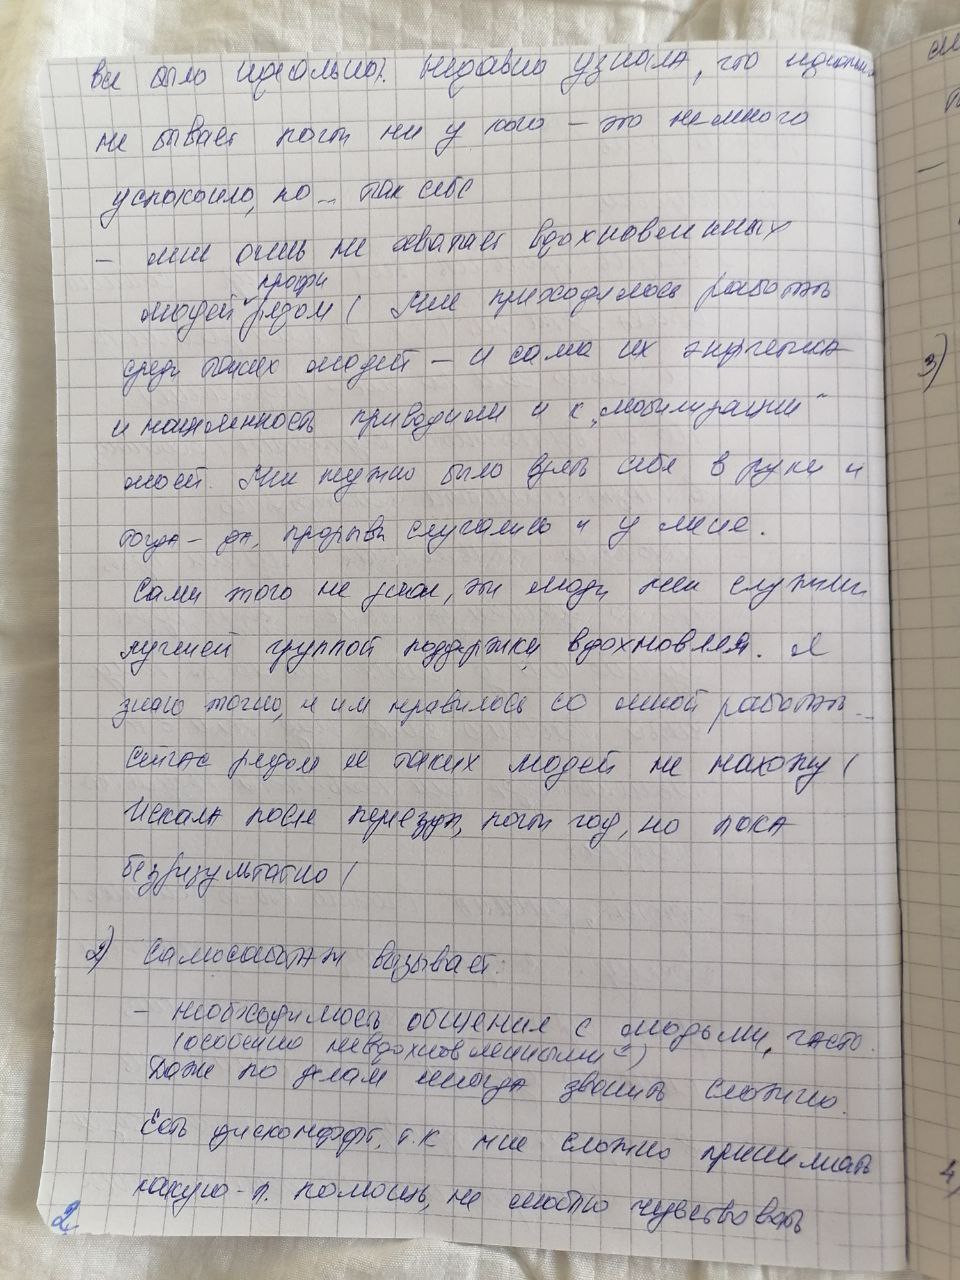 все было идеально). Недавно узнала, что идеально
не бывает почти ни у кого – это немного
успокоило, но... так себе
– мне очень не хватает вдохновленных
профи
людей рядом ( Мне приходилось работать
среди таких людей – и сама их энергетика
и нацеленность приводили и к „мобилизации“
моей. Мне нужно было взять себя в руки и
тогда – да, прорывы случались и у меня.
Сами того не зная, эти люди мне служили
лучшей группой поддержки, вдохновляя. Я
знаю точно, и им нравилось со мной работать...
Сейчас рядом я таких людей не нахожу (
Искала после переезда, почти год, но пока
безрезультатно (
2) Самосаботаж вызывает:
– необходимость общения с людьми, часто.
(особенно невдохновленными)
Даже по делам иногда звонить сложно.
Есть дискомфорт, т.к мне сложно принимать
какую-л. помощь, не люблю чувствовать
2
3)
4)